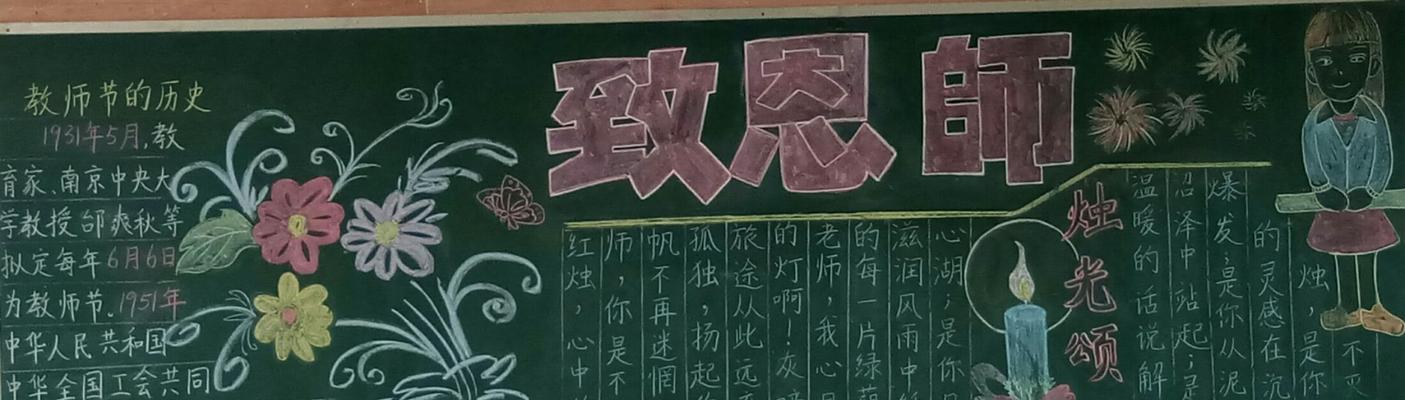 致恩師
教师节的历史
1931年5月,教
育家、南京中央大
学教授邰爽秋等
拟定每年6月6日
为教师节.1951年
中华人民共和国
中华全国工会共同
烛光颂
不灭
烛，是你
的灵感在沉
爆发；是你从泥
沼泽中站起；是
温暖的话说解
心湖；是你
滋润风雨中
的每一片绿
老师，我心
的灯啊！灰
旅途从此远
孤独，扬起
帆不再迷惘
师，你是不
红烛，心中